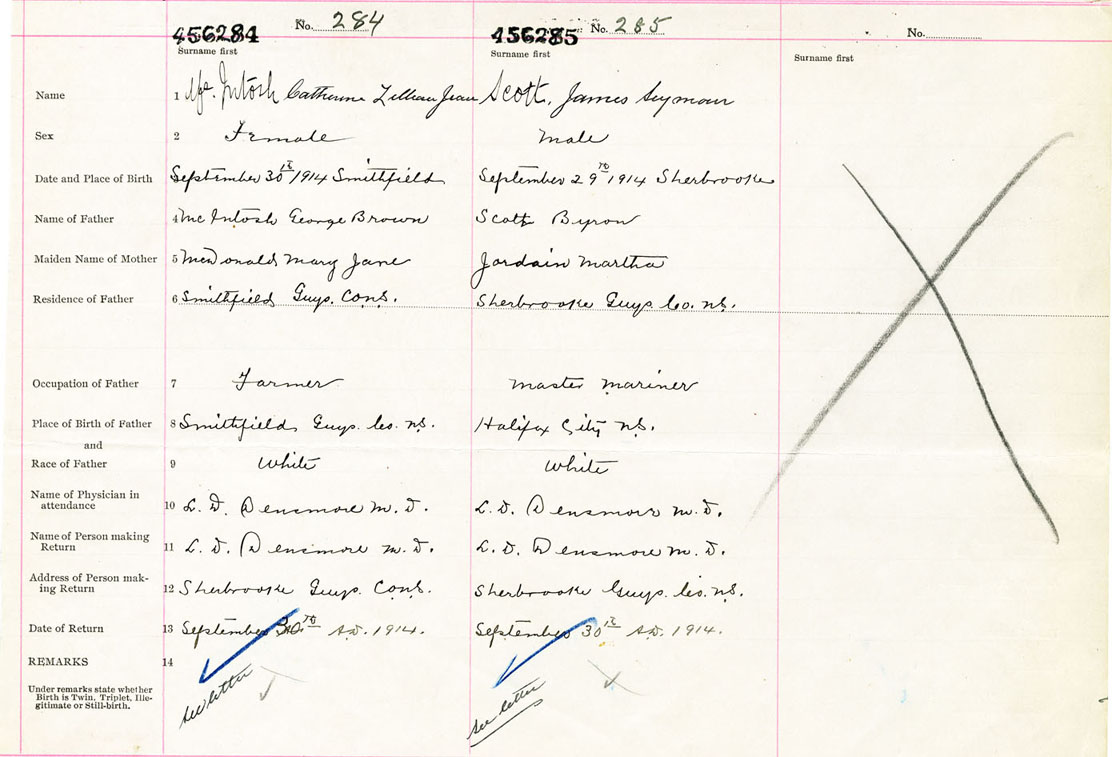 No. 284 No. 285 No.
456284 456285
Surname first Surname first Surname first
Name 1 Mc. Intosh Catherine Lillian Jean Scott, James Seymour
Sex 2 Female Male
Date and Place of Birth September 30th 1914 Smithfield September 29th 1914 Sherbrooke
Name of Father 4 Mc Intosh George Brown Scott Byron
Maiden Name of Mother 5 McDonald Mary Jane Jordain Martha
Residence of Father 6 Smithfield Guys. Co N.S. Sherbrooke Guys. Co. N.S.
Occupation of Father 7 Farmer Master Mariner
Place of Birth of Father 8 Smithfield Guys. Co. N.S. Halifax City N.S.
and
Race of Father 9 White White
Name of Physician in
attendance 10 L. D. Densmore M.D. L. D. Densmore M.D.
Name of Person making
Return 11 L. D. Densmore M.D. L. D. Densmore M.D.
Address of Person mak-
ing Return 12 Sherbrooke Guys. Co N.S. Sherbrooke Guys. Co. N.S.
Date of Return 13 September 30th A.D. 1914. September 30th A.D. 1914.
REMARKS 14
Under remarks state whether
Birth is Twin, Triplet, Ille-
gitimate or Still-birth.
see letter see letter